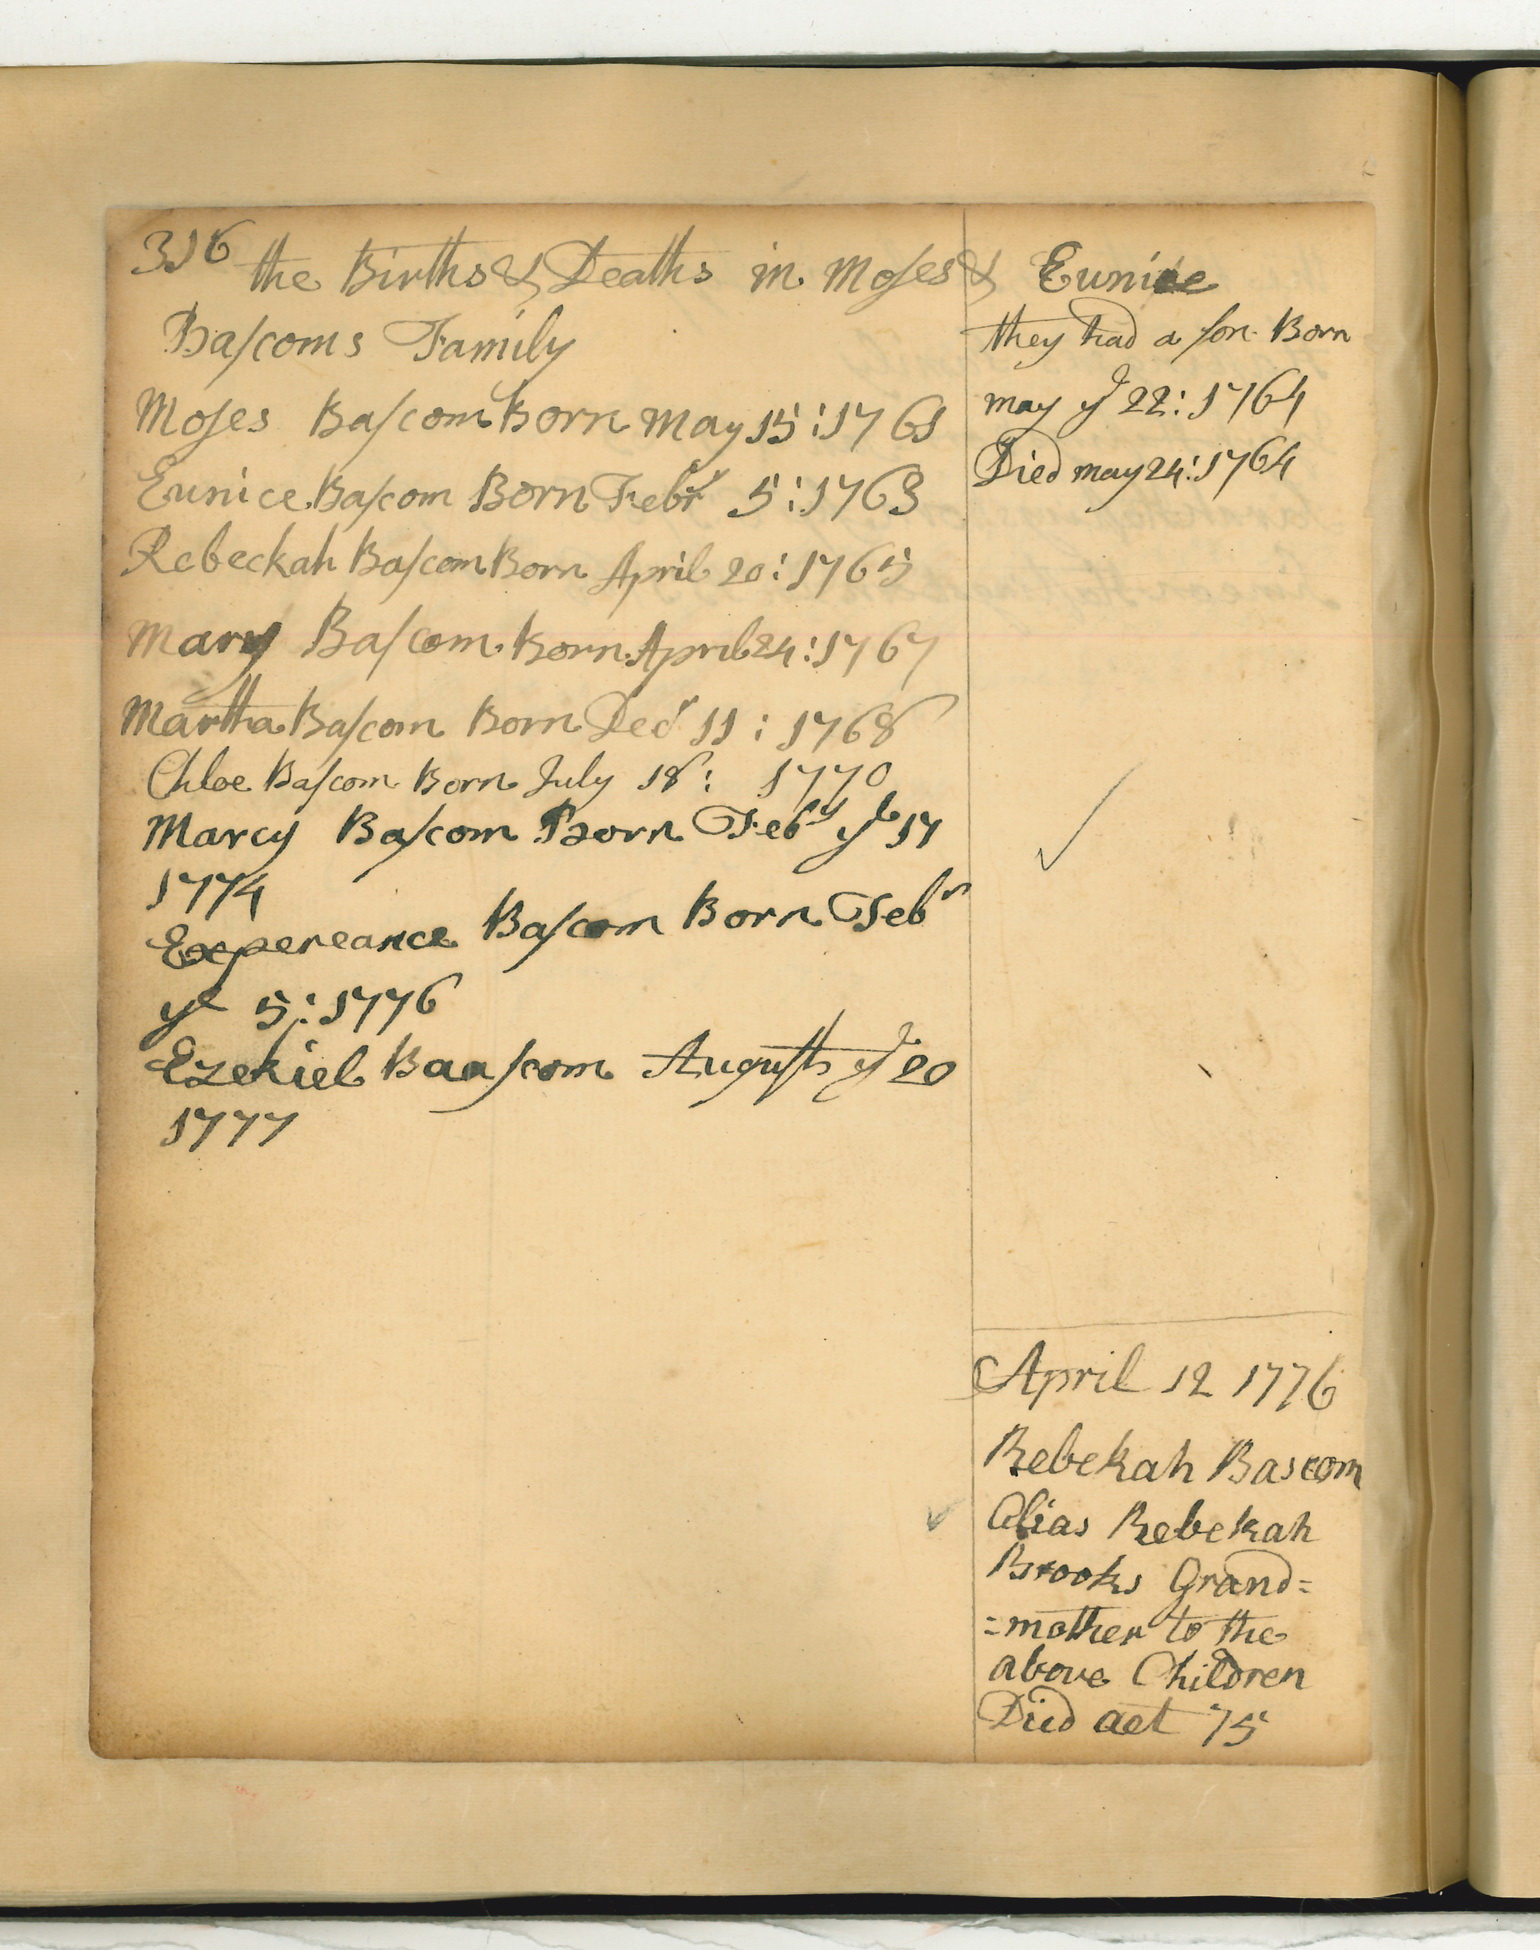 316
the Births & Deaths in Moſes & Eunice
Baſcoms Family
Moſes Baſcom Born May 15:1761
Eunice Baſcom Born Febr 5:1763
Rebeckah Baſcom Born April 20:1765
Mary Baſcom Born April 24:1767
Martha Baſcom Born Decr 11:1768
Chloe Baſcom Born July 18: 1770
Marcy Baſcom Born Feby ye 17
1774
Expereance Baſcom Born Febr
ye 5:1776
Ezekiel Baaſcom Auguſt ye 20
1777
they had a ſon Born
may ye 22:1764
Died may 24:1764
April 12 1776
Rebekah Bascom
Alias Rebekah
Brooks Grand=
=mother to the
above Children
Died aet 75